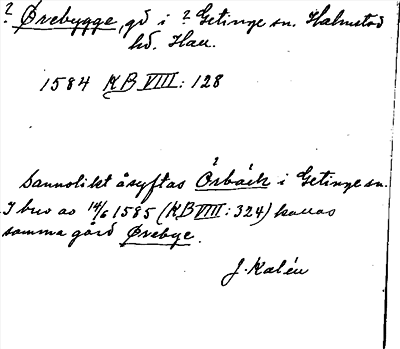 ? Ørebygge, gd i ? Getinge sn. Halmstad
hd. Hall.
1584 KB VIII: 128
Sannolikt åsyftas Örbäck i Getinge sn.
I brev av 14/6 1585 (KB VIII: 324) kallas
samma gård Ørebye.
J. Kalén